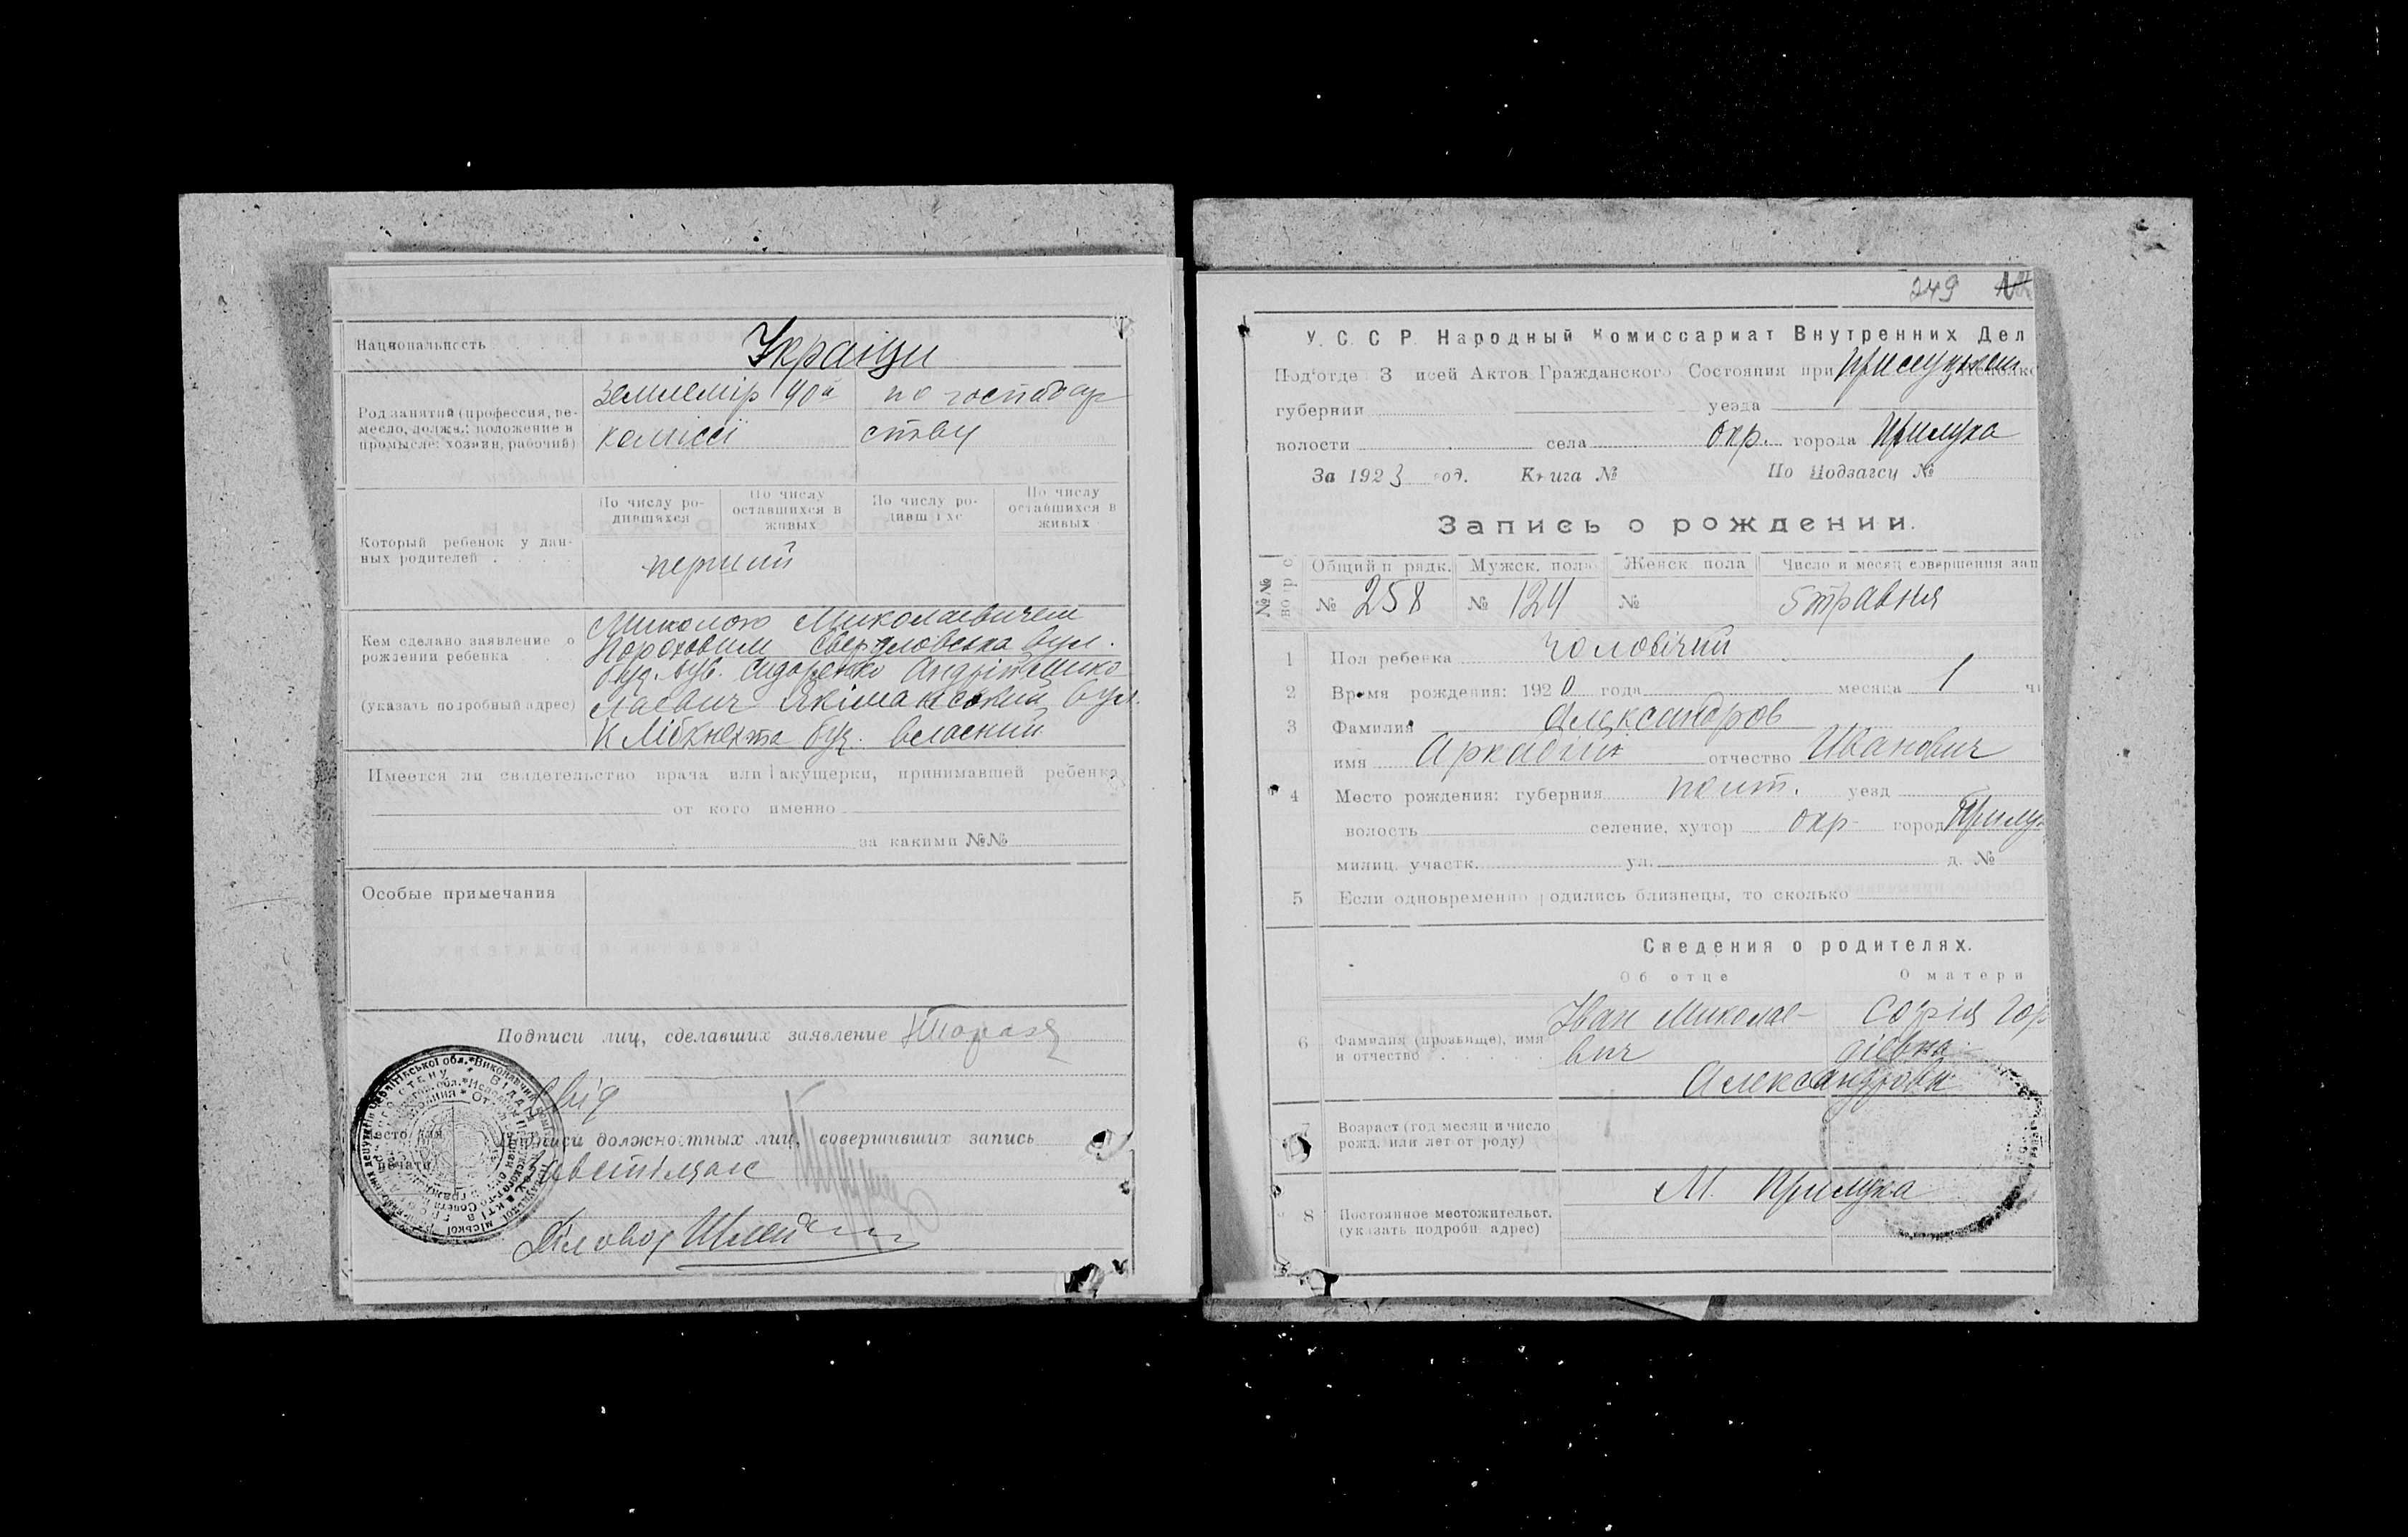 Национальность
Українци
Род занятий (профессия, ре-
месло, должн.; положение в
промысле: хозяин, рабочий)
Землемір
комісії
по господар
ству
Который ребенок у дан-
ных родителей . . .
По числу ро-
дившихся
По числу
оставшихся в
живых
По числу ро-
дивш і хс
По числу
оставшихся в
живых
перший
Кем сделано заявление о
рождении ребенка . .
(указать подробный адрес)
Миколою Миколаевичем
Пороховим Свердловська вул.
буд. Сидоренко Андрій Мико
лаевич вул.
К Лібкнехта буд. власний
Имеется ли свидетельство врача или акушерки, принимавшей ребенка
от кого именно
за какими №№
Особые примечания
Подписи лиц, сделавших заявление
Подписи должностных лиц, совершивших запись
Место для
печати
Діловод
249
У. С. С. Р. Народный Комиссариат Внутренних Дел
Под'отде З исей Актов Гражданского Состояния при
губернии уезда
волости села окр. города Прилука
За 1923 год. Книга № По Подзагсу №
Запись о рождении.
№№
Общий п рядк. Мужск. пола Женск. пола Число и месяц совершения зап
№ 258 № 124 № 5 травня
1 Пол ребенка чоловічий
2 Время рождения: 1920 года месяца 1 чи
3 Фамилия Александров
имя Аркадій отчество Иванович
4 Место рождения: губерния полт. уезд
волость селение, хутор окр. город Прилу
милиц. участк. ул. д. №
5 Если одновременно родились близнецы, то сколько
Сведения о родителях.
Об отце О матери
6 Фамилия (прозвище), имя
и отчество . . . .
Іван Миколае-
вич
Софія Гор
діевна
Александрови
7 Возраст (год месяц и число
рожд. или лет от роду)
8 Постоянное местожительст.
(указать подробн адрес)
М. Прилука